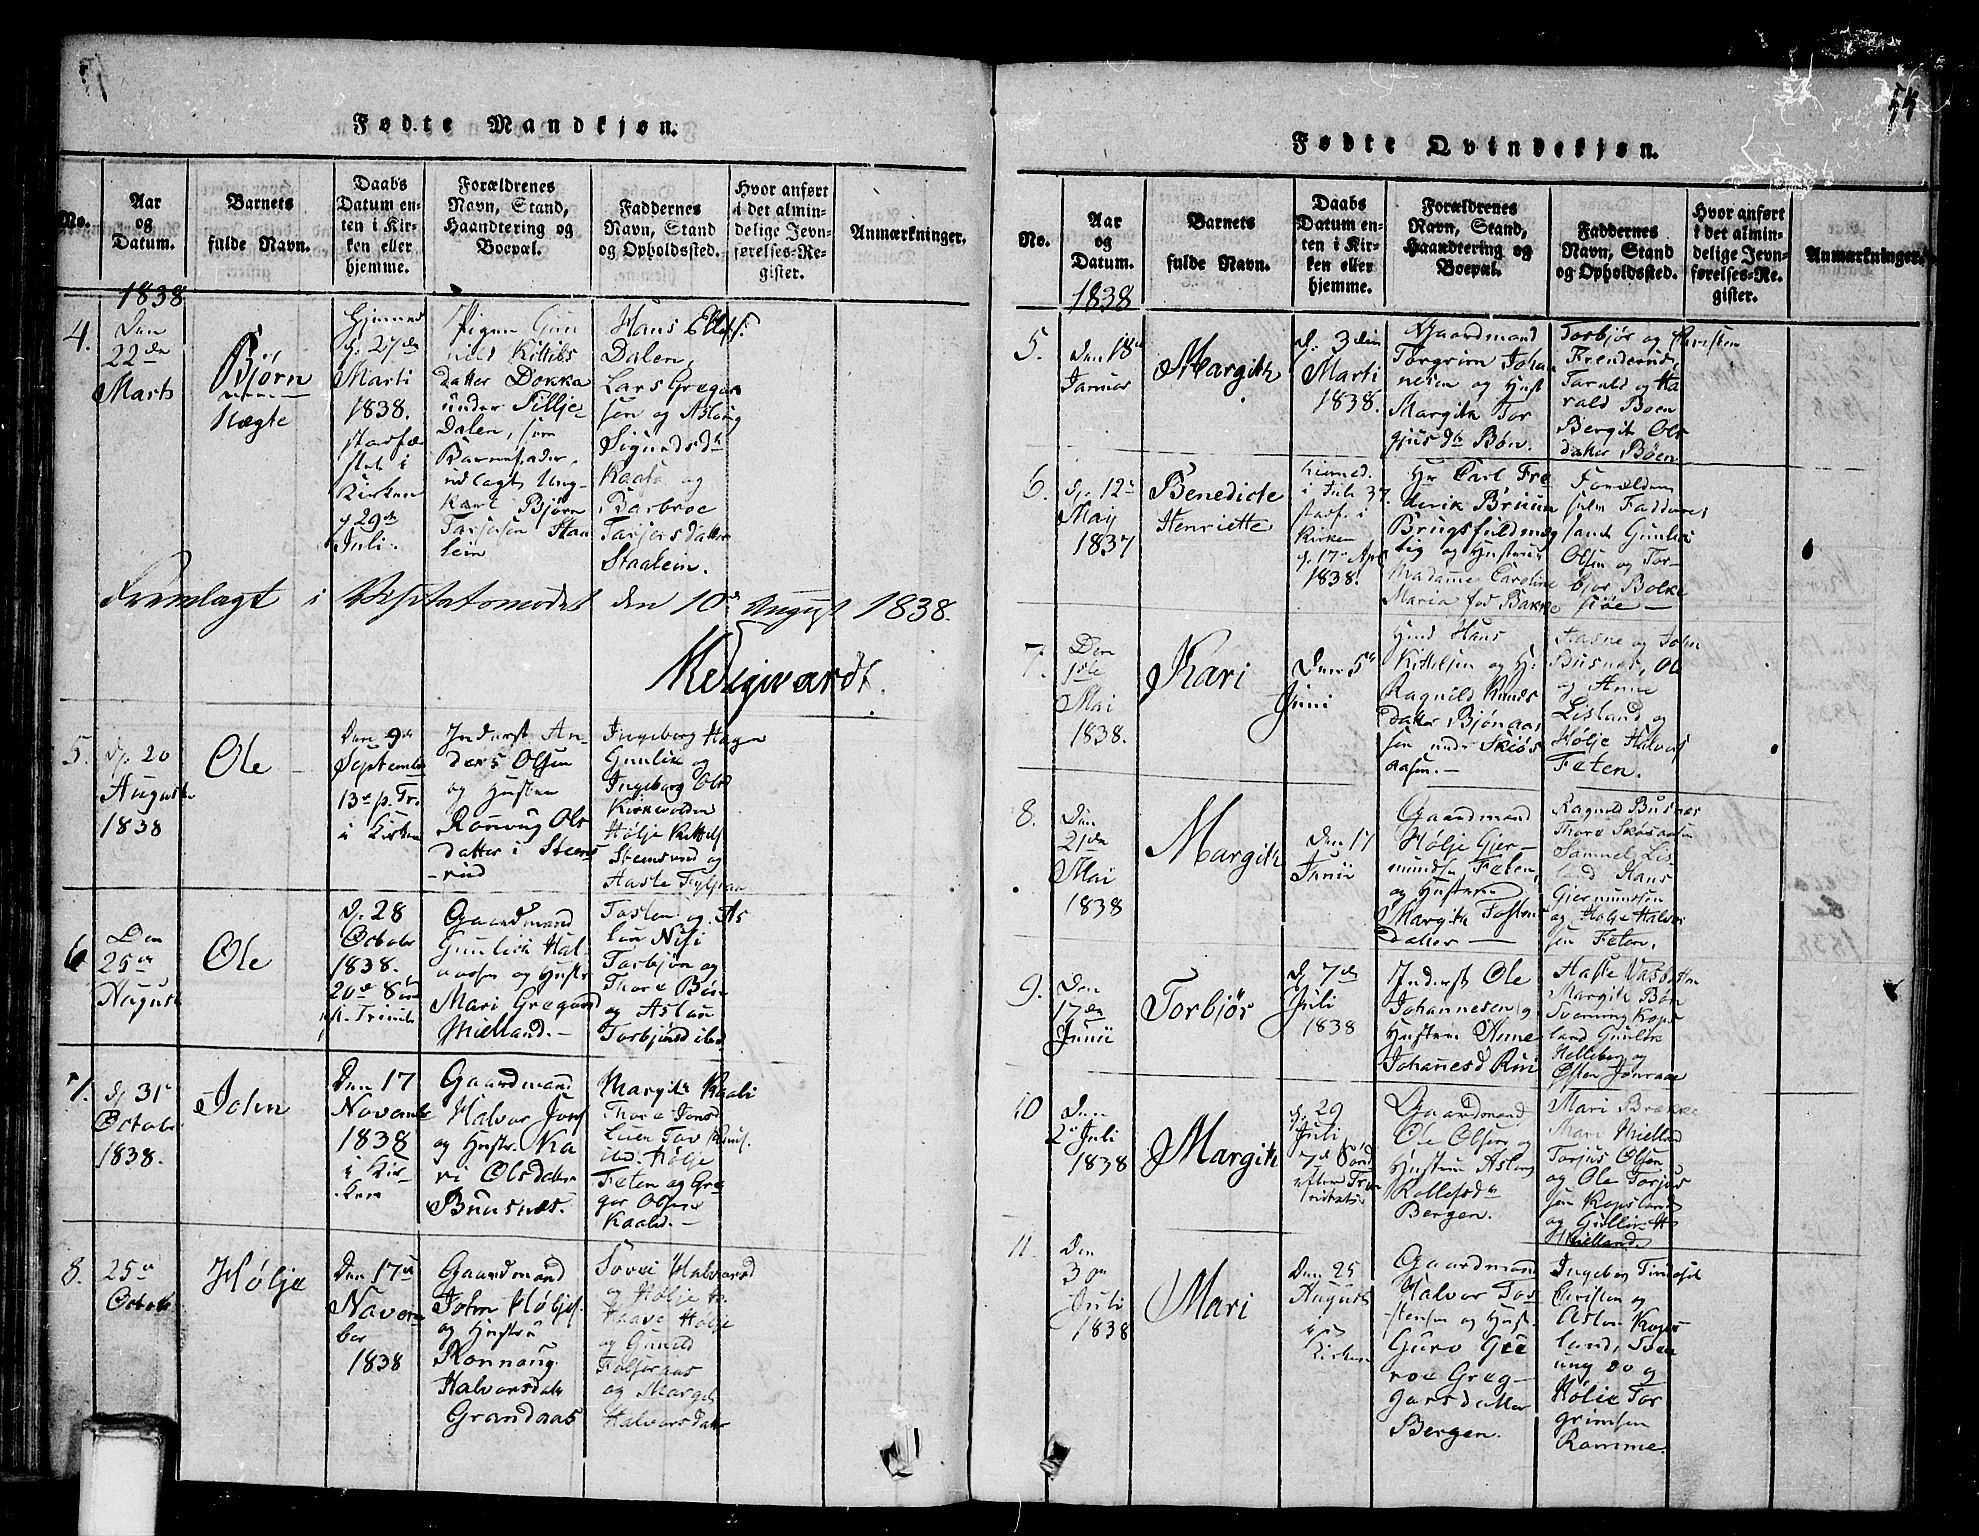 Fødte Mandkjøn.
No.
Aar
og
Datum.
Barnets
fulde Navn.
Daabs
Datum en-
ten i Kir-
ken eller
hjemme.
Forældrenes
Navn, Stand,
Haandtering og
Boepæl.
Faddernes
Navn, Stand
og Opholdssted.
Hvor anført
i det almin-
delige Jevn-
førelses-Re-
gister.
Anmærkninger.
1838
4.
Den
22de
Marts
Bjørn
Hægte
d. 27de
Marti
1838.
stadfæ
stet i
Kirken
d 29de
Juli.
Pigen Gun
nild Kittils
datter Dokka
under Sillje
Dalen, som
Barnefader,
udlagt Ung-
karl Bjørn
Hans
Dalen,
Lars Gregar
sen og Aslaug
Sigurdsdtr
og
Staalein.
Fremlagt i Visitatsmødet den 10de August 1838.
5.
D. 20
August
1838
Ole
Den 9de
September
13de p. Tr.
i Kirken
Inderst An-
ders Olsen
og Hustru
Rønnoug Ols
datter i Steens
rud
Ingeborg Hagen
Gunlik og
Ingeborg Olsd
Kirkevolden
Hølje Kittels
Stemsrud og
6
Den
25de
August
Ole
D. 28
Octobr
1838.
20de Sønd
p. Trinit.
Gaardmand
Gunlich Hal-
vorsen og Hustr
Mari Gregarsd
Mielland.
Tosten og As
Torbjøn og
Thore Bøen
og Aslau
7.
D. 31
Octobr
1838.
John
Den 17
Novembr
1838
i Kir-
ken
Gaardmand
Halvor Jons
og Hustr. Ka
ri Olsdatter
Buusnæs.
Margith Kaali
Thore Jonsd
Hølje
Feten og Gre
gar Olsen
Kaali.
8.
25de
Octobr
Hølje
Den 17de
Novem
ber
1838
Gaardmand
John Høljes.
og Hustru
Rønnoug
Halvorsdatr
Grandaas
Halvorsd
og Hølje
Haave Hølje
og Gunild
og Margit
Halvorsdatr
Fødte Qvindekjøn.
No.
Aar
og
Datum.
Barnets
fulde Navn.
Daabs
Datum en-
ten i Kir-
ken eller
hjemme.
Forældrenes
Navn, Stand,
Haandtering og
Boepæl.
Faddernes
Navn, Stand
og Opholdssted.
Hvor anført
i det almin-
delige Jevn-
førelses-Re-
gister.
Anmærkninger.
1838
5.
Den 18de
Januar
Margith
d. 3die
Marti
1838.
Gaardmand
Torgrim Johan
nesen og Hust
Margith Tor
gjusdtr Bøn.
Torbjør og Christen
Frenderud,
Tarald og Ha
rald Boen
Bergit Ols
datter Bøen
6.
D. 12te
Maij
1837
Benedicte
Henriette
hiemmed.
i Juli 37.
stadf. i
Kirken
d. 17de Apr
1838.
Hr Carl Fre
derik Bruun
Brugsfuldmæg
tig og Hustru
Madame Caroline
Maria fød Bakke
Forældrene
selv Faddere
samt Gunlik
Olsen og Tor-
bjør Bolke
siøe
7.
Den
1ste
Mai
1838.
Kari
Den 5te
Juni
Hans
Kittelsen og H.
Ragnild Knuds
datter Bjønaas
sen under Skiøs
aasen.
Aasne og John
Busnes, Ole
og Anne
Lisland og
Hølje Halvors
Feten.
8.
Den
21de
Mai
1838
Margith
Den 17
Junii
Gaardmand
Hølje Gjer-
mundsen Feten,
og Hustru
Margith Tostens
datter
Ragnild Busnes
Thore Skøsaasen
Samuel Lis
land Hans
Gjermundsen
og Hølje Halvor
sen Feten.
9.
Den
17de
Junii
Torbjør
D 7de
Juli
1838
Inderst Ole
Johannesen og
Hustru Anne
Johannesd Rui
Margith Bøn
Sveinung Kops
land Gunlik
Helleberg og
10
Den
2de Juli
1838
Margith
d. 29
Juli
7de Sønd
efter Tri
nitatis
Gaardmand
Ole Olsen og
Hustru Aslaug
Rollefsdtr
Bergen.
Mari Brække
Mari Mielland
Torjus Olsen
og Ole Torjus
sen Kopsland
og
Mielland
11.
Den
30te
Juli
1838
Mari
Den 25
August
i
Kirken
Gaardmand
Halvor Tos-
tensen og Hust.
Guro
Greg-
garsdatter
Bergen.
Ingeborg
Christen og
Aslau Kops-
land, Svein
ung do og
Hølje Tor
grimsen
Ramme.